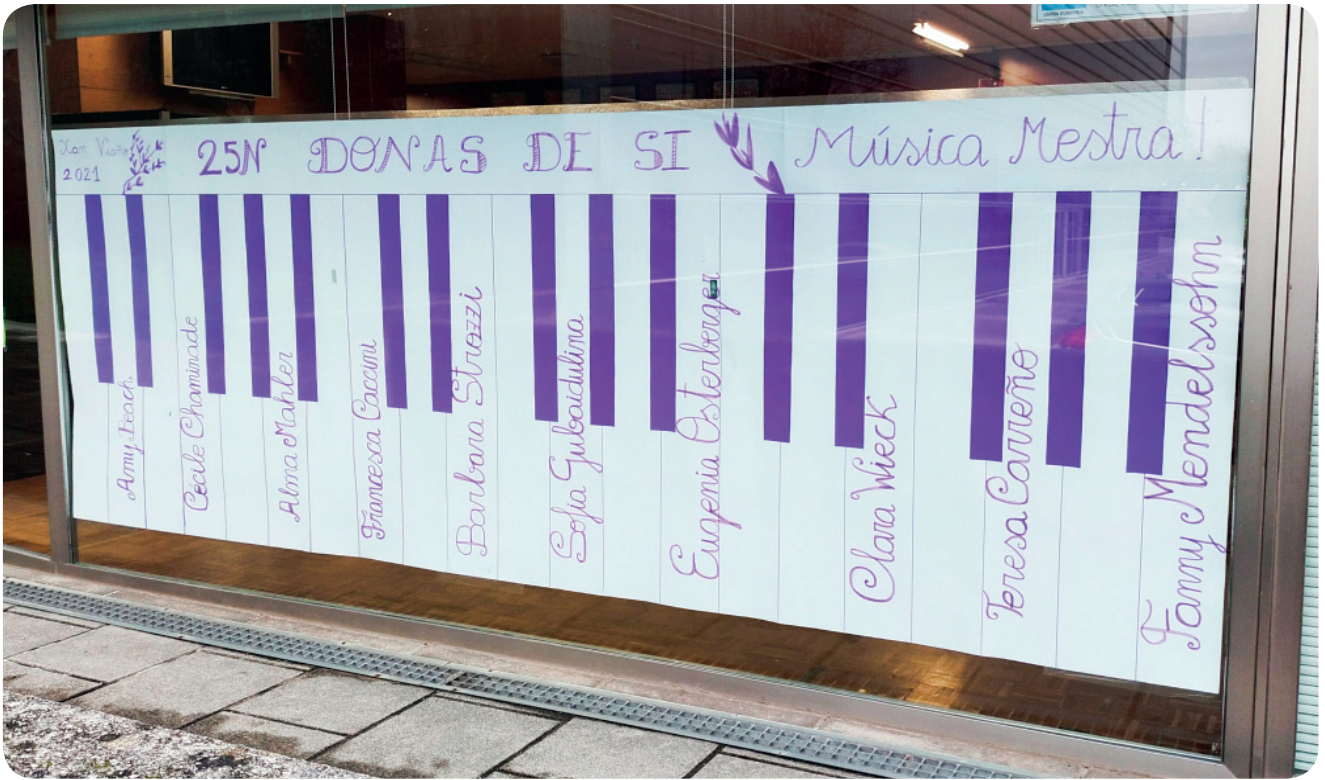 Xan Viaño
2021
25N DONAS DE SI Música Mestra!
Amy Beach
Cécile Chaminade
Alma Mahler
Francesca Caccini
Barbara Strozzi
Sofia Gubaidulina
Eugenia Osterberger
Clara Wieck
Teresa Carreño
Fanny Mendelssohn